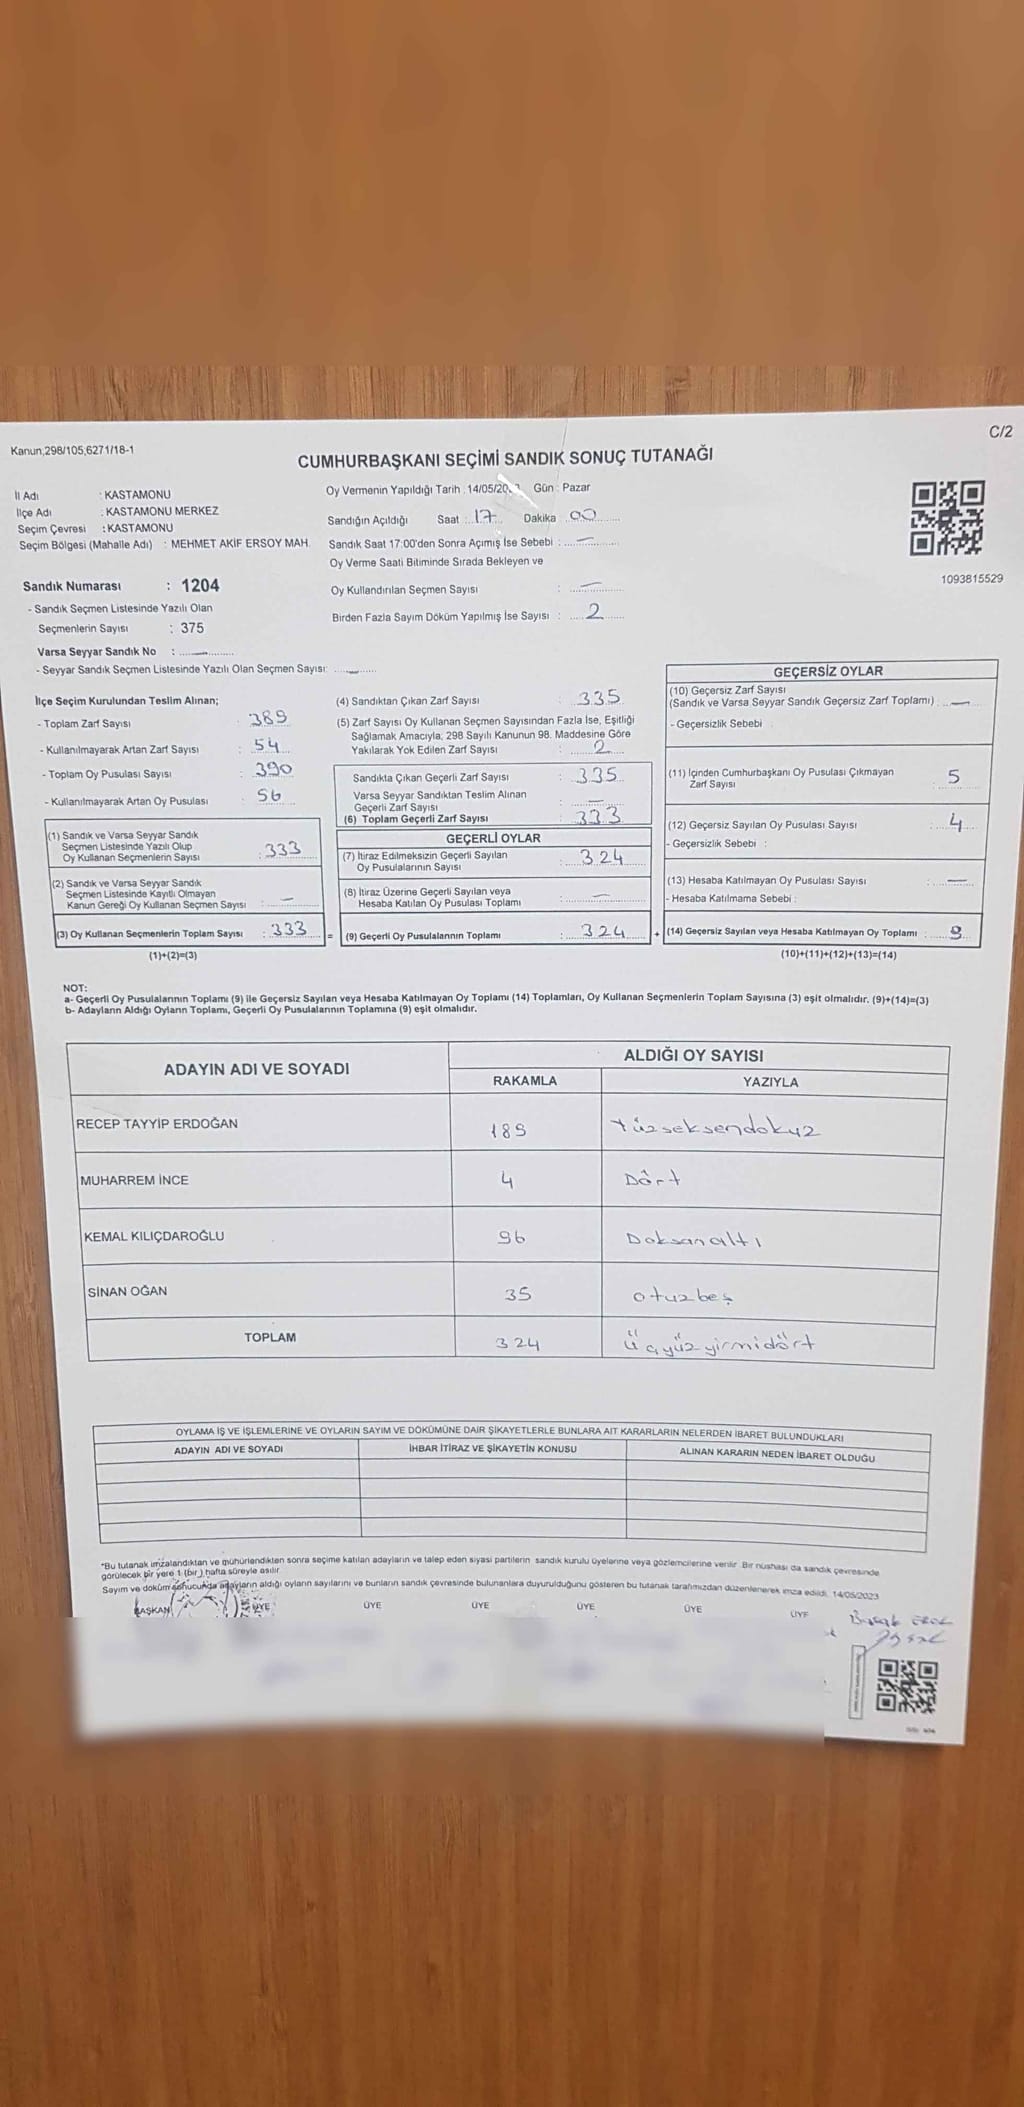 C/2
Kanun;298/105;6271/18-1
CUMHURBAŞKANI SEÇİMİ SANDIK SONUÇ TUTANAĞI
İl Adı : KASTAMONU
İlçe Adı : KASTAMONU MERKEZ
Seçim Çevresi : KASTAMONU
Seçim Bölgesi (Mahalle Adı) : MEHMET AKİF ERSOY MAH.
Sandık Numarası : 1204
- Sandık Seçmen Listesinde Yazılı Olan
Seçmenlerin Sayısı : 375
Varsa Seyyar Sandık No : —
- Seyyar Sandık Seçmen Listesinde Yazılı Olan Seçmen Sayısı: —
Oy Vermenin Yapıldığı Tarih : 14/05/20 Gün : Pazar
Sandığın Açıldığı Saat : 17 Dakika : 00
Sandık Saat 17:00'den Sonra Açımış İse Sebebi : —
Oy Verme Saati Bitiminde Sırada Bekleyen ve
Oy Kullandırılan Seçmen Sayısı : —
Birden Fazla Sayım Döküm Yapılmış İse Sayısı : 2
1093815529
İlçe Seçim Kurulundan Teslim Alınan;
- Toplam Zarf Sayısı : 389
- Kullanılmayarak Artan Zarf Sayısı : 54
- Toplam Oy Pusulası Sayısı : 390
- Kullanılmayarak Artan Oy Pusulası : 56
(1) Sandık ve Varsa Seyyar Sandık
Seçmen Listesinde Yazılı Olup
Oy Kullanan Seçmenlerin Sayısı : 333
(2) Sandık ve Varsa Seyyar Sandık
Seçmen Listesinde Kayıtlı Olmayan
Kanun Gereği Oy Kullanan Seçmen Sayısı : —
(3) Oy Kullanan Seçmenlerin Toplam Sayısı : 333
(1)+(2)=(3)
(4) Sandıktan Çıkan Zarf Sayısı : 335
(5) Zarf Sayısı Oy Kullanan Seçmen Sayısından Fazla İse, Eşitliği
Sağlamak Amacıyla; 298 Sayılı Kanunun 98. Maddesine Göre
Yakılarak Yok Edilen Zarf Sayısı : 2
Sandıkta Çıkan Geçerli Zarf Sayısı : 335
Varsa Seyyar Sandıktan Teslim Alınan
Geçerli Zarf Sayısı : —
(6) Toplam Geçerli Zarf Sayısı : 333
GEÇERLİ OYLAR
(7) İtiraz Edilmeksizin Geçerli Sayılan
Oy Pusulalarının Sayısı : 324
(8) İtiraz Üzerine Geçerli Sayılan veya
Hesaba Katılan Oy Pusulası Toplamı : —
= (9) Geçerli Oy Pusulalarının Toplamı : 324 +
GEÇERSİZ OYLAR
(10) Geçersiz Zarf Sayısı
(Sandık ve Varsa Seyyar Sandık Geçersiz Zarf Toplamı) : —
- Geçersizlik Sebebi :
(11) İçinden Cumhurbaşkanı Oy Pusulası Çıkmayan
Zarf Sayısı : 5
(12) Geçersiz Sayılan Oy Pusulası Sayısı : 4
- Geçersizlik Sebebi :
(13) Hesaba Katılmayan Oy Pusulası Sayısı : —
- Hesaba Katılmama Sebebi :
(14) Geçersiz Sayılan veya Hesaba Katılmayan Oy Toplamı : 9
(10)+(11)+(12)+(13)=(14)
NOT:
a- Geçerli Oy Pusulalarının Toplamı (9) ile Geçersiz Sayılan veya Hesaba Katılmayan Oy Toplamı (14) Toplamları, Oy Kullanan Seçmenlerin Toplam Sayısına (3) eşit olmalıdır. (9)+(14)=(3)
b- Adayların Aldığı Oyların Toplamı, Geçerli Oy Pusulalarının Toplamına (9) eşit olmalıdır.
ADAYIN ADI VE SOYADI
ALDIĞI OY SAYISI
RAKAMLA YAZIYLA
RECEP TAYYİP ERDOĞAN 189 Yüzseksendokuz
MUHARREM İNCE 4 Dört
KEMAL KILIÇDAROĞLU 96 Doksanaltı
SİNAN OĞAN 35 otuzbeş
TOPLAM 324 Üçyüzyirmidört
OYLAMA İŞ VE İŞLEMLERİNE VE OYLARIN SAYIM VE DÖKÜMÜNE DAİR ŞİKAYETLERLE BUNLARA AİT KARARLARIN NELERDEN İBARET BULUNDUKLARI
ADAYIN ADI VE SOYADI İHBAR İTİRAZ VE ŞİKAYETİN KONUSU ALINAN KARARIN NEDEN İBARET OLDUĞU
*Bu tutanak imzalandıktan ve mühürlendikten sonra seçime katılan adayların ve talep eden siyasi partilerin sandık kurulu üyelerine veya gözlemcilerine verilir. Bir nüshası da sandık çevresinde
görülecek bir yere 1 (bir) hafta süreyle asılır.
Sayım ve döküm sonucunda adayların aldığı oyların sayılarını ve bunların sandık çevresinde bulunanlara duyurulduğunu gösteren bu tutanak tarafımızdan düzenlenerek imza edildi. 14/05/2023
BAŞKAN ÜYE ÜYE ÜYE ÜYE ÜYE ÜYE